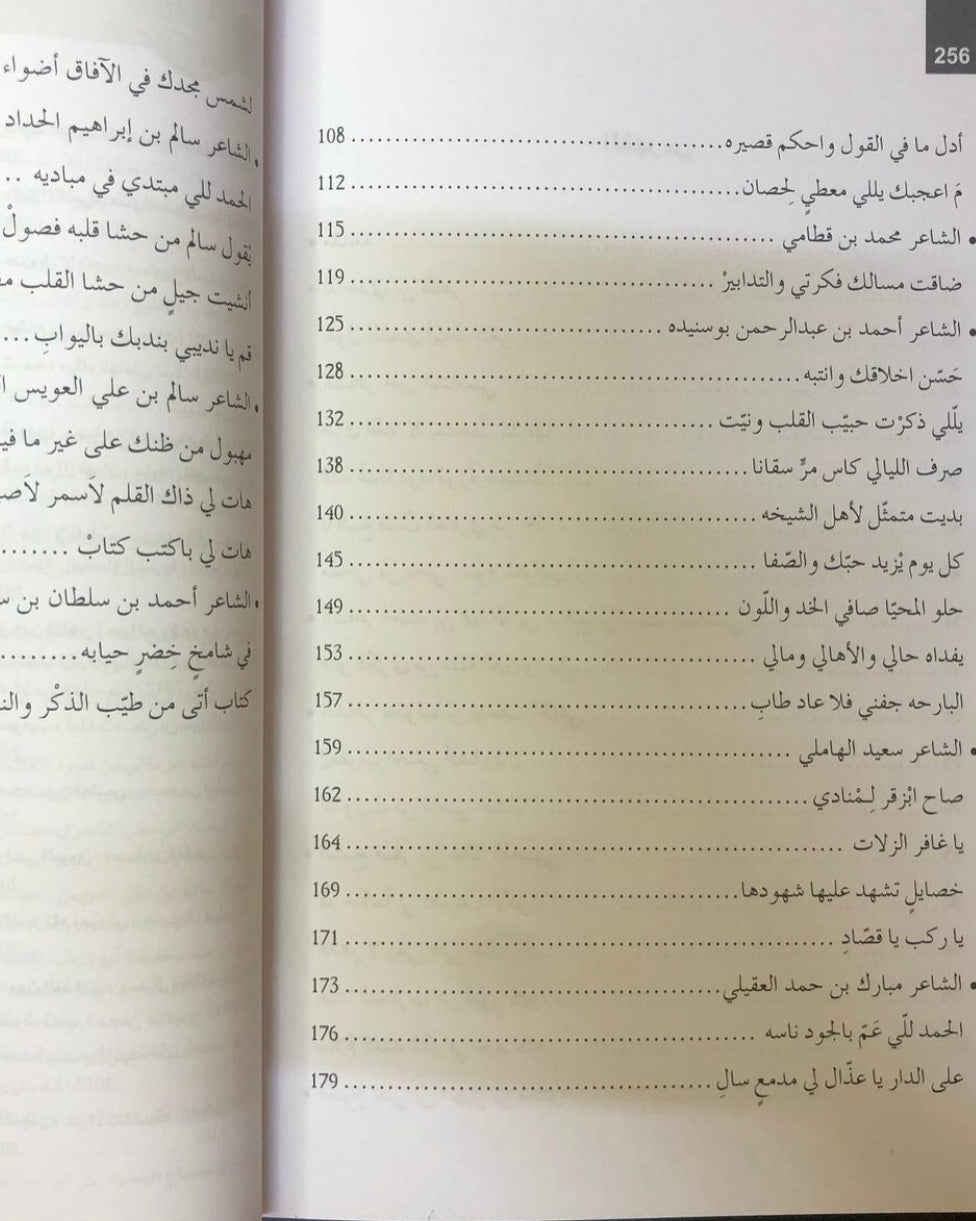 256
أدل ما في القول واحكم قصيره ........ 108
مَ اعجبك يللي معطيٍ لِحصان ........ 112
• الشاعر محمد بن قطامي ........ 115
ضاقت مسالك فكرتي والتدابيرْ ........ 119
• الشاعر أحمد بن عبدالرحمن بوسنيده ........ 125
حَسّن اخلاقك وانتبه ........ 128
يلّلي ذكرْت حبيّب القلب ونيّت ........ 132
صرف الليالي كاس مرٍّ سقانا ........ 138
بديت متمثّل لأهل الشيخه ........ 140
كل يوم يْزيد حبّك والصّفا ........ 145
حلو المحيّا صافي الخد واللّون ........ 149
يفداه حالي والأهالي ومالي ........ 153
البارحه جفني فلا عاد طابِ ........ 157
• الشاعر سعيد الهاملي ........ 159
صاح ابْزقر لِـمْنادي ........ 162
يا غافر الزلات ........ 164
خصايلٍ تشهد عليها شهودها ........ 169
يا ركب يا قصّادِ ........ 171
• الشاعر مبارك بن حمد العقيلي ........ 173
الحمد للّي عَمّ بالجود ناسه ........ 176
على الدار يا عذّال لي مدمعٍ سالِ ........ 179
لشمس مجدك في الآفاق أضواء
• الشاعر سالم بن إبراهيم الحداد
الحمد للي مبتدي في مباديه ..
يْقول سالم من حشا قلبه فصولْ
أنشيت جيلٍ من حشا القلب
قم يا نديبي بندبك باليوابِ ...
• الشاعر سالم بن علي العويس
مهبول من ظنك على غير ما
هات لي ذاك القلم لاَسمر
هات لي باكتب كتابْ ........
• الشاعر أحمد بن سلطان بن
في شامخٍ خِضرٍ حيابه ........
كتاب أتى من طيّب الذكْر